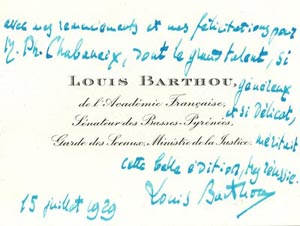 avec mes remerciements et mes félicitations pour
M. Ph. Chabaneix, dont le grand talent, si
LOUIS BARTHOU, généreux
de l'Académie Française, et si délicat,
Sénateur des Basses-Pyrénées,
Garde des Sceaux, Ministre de la Justice. méritait
cette belle édition, très réussie.
15 juillet 1929 Louis Barthou